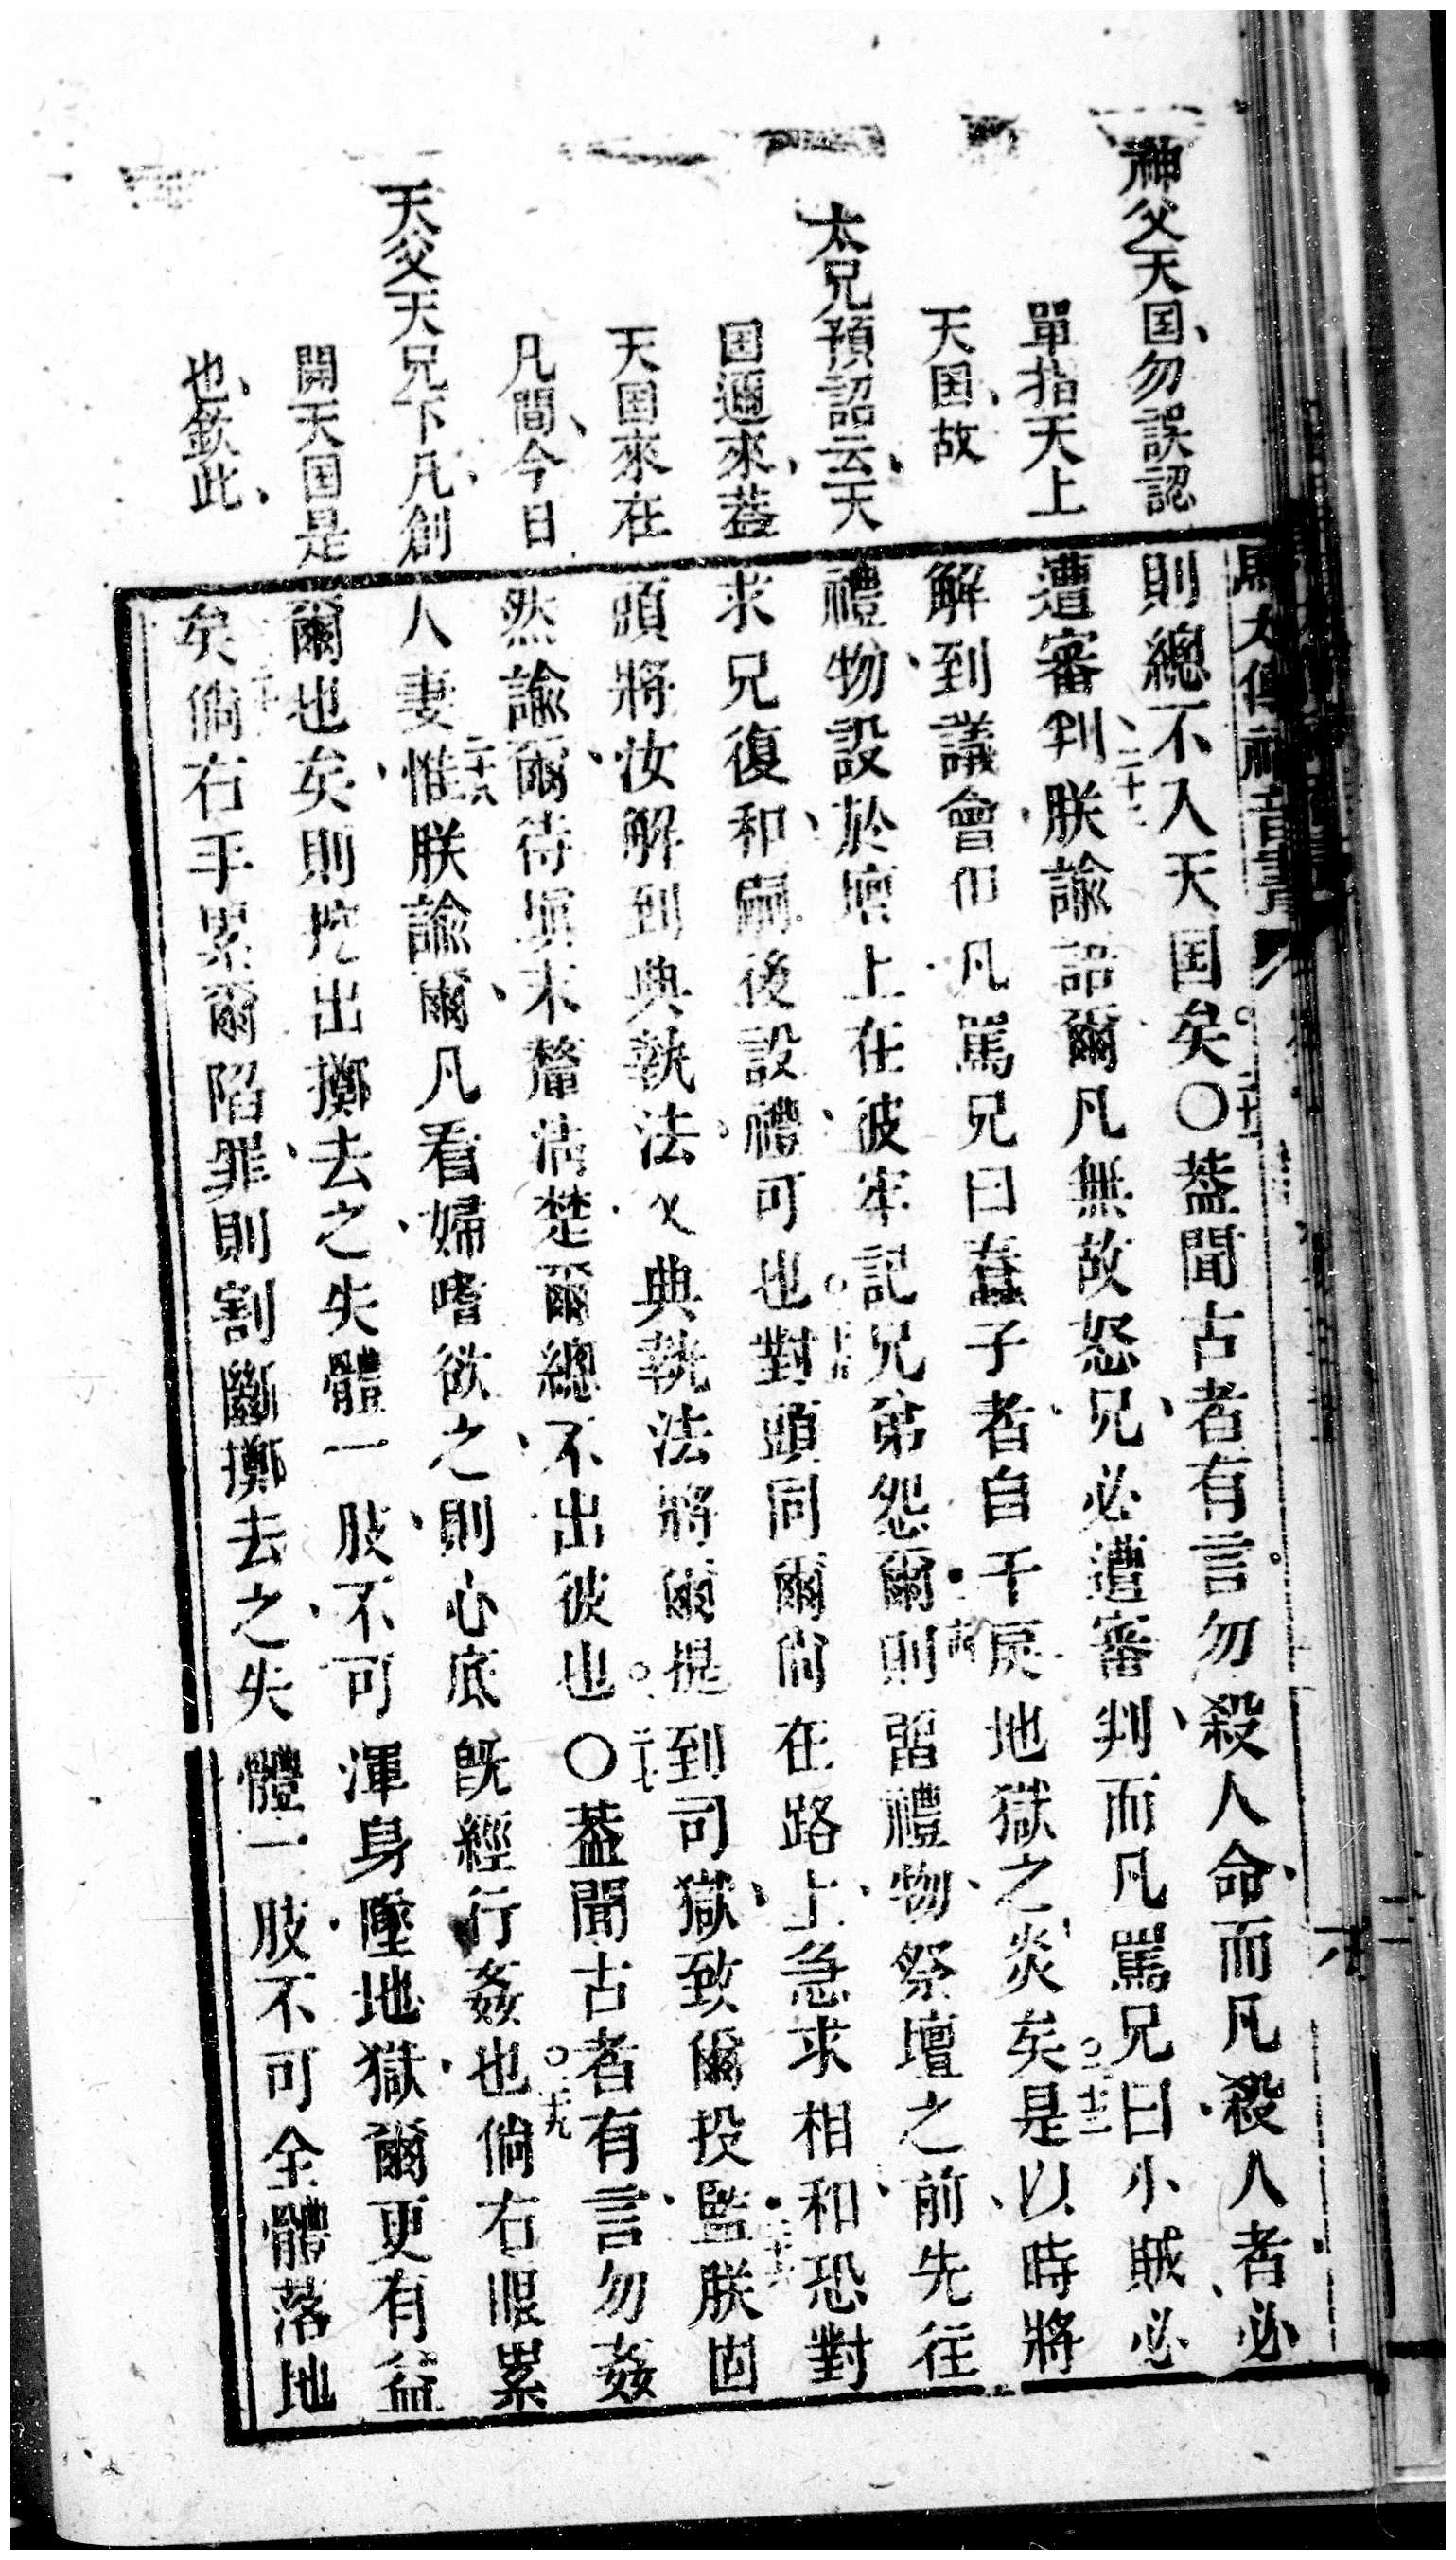 神父天囯勿誤認
單指天上
天囯故
太兄預詔云天
囯邇來蓋
天囯來在
凡間今日
天父天兄下凡創
開天囯是
也欽此
馬太傳福音書
則總不入天囯矣〇蓋聞古者有言勿殺人命而凡殺人者必
遭審判朕諭詔爾凡無故怒兄必遭審判而凡罵兄曰小賊必
解到議會但凡罵兄曰蠢子者自干戾地獄之炎矣是以時將
禮物設於壇上在彼牢記兄弟怨爾則留禮物祭壇之前先往
求兄復和嗣後設禮可也對頭同爾尚在路上急求相和恐對
頭將汝解到典執法又典執法將爾提到司獄致爾投監朕固
然諭爾待塡末釐淸楚爾總不出彼也〇蓋聞古者有言勿姦
人妻惟朕諭爾凡看婦嗜欲之則心底旣經行姦也倘右眼累
爾也矣則挖出擲去之失體一肢不可渾身墜地獄爾更有益
矣倘右手累爾陷罪則割斷擲去之失體一肢不可全體落地